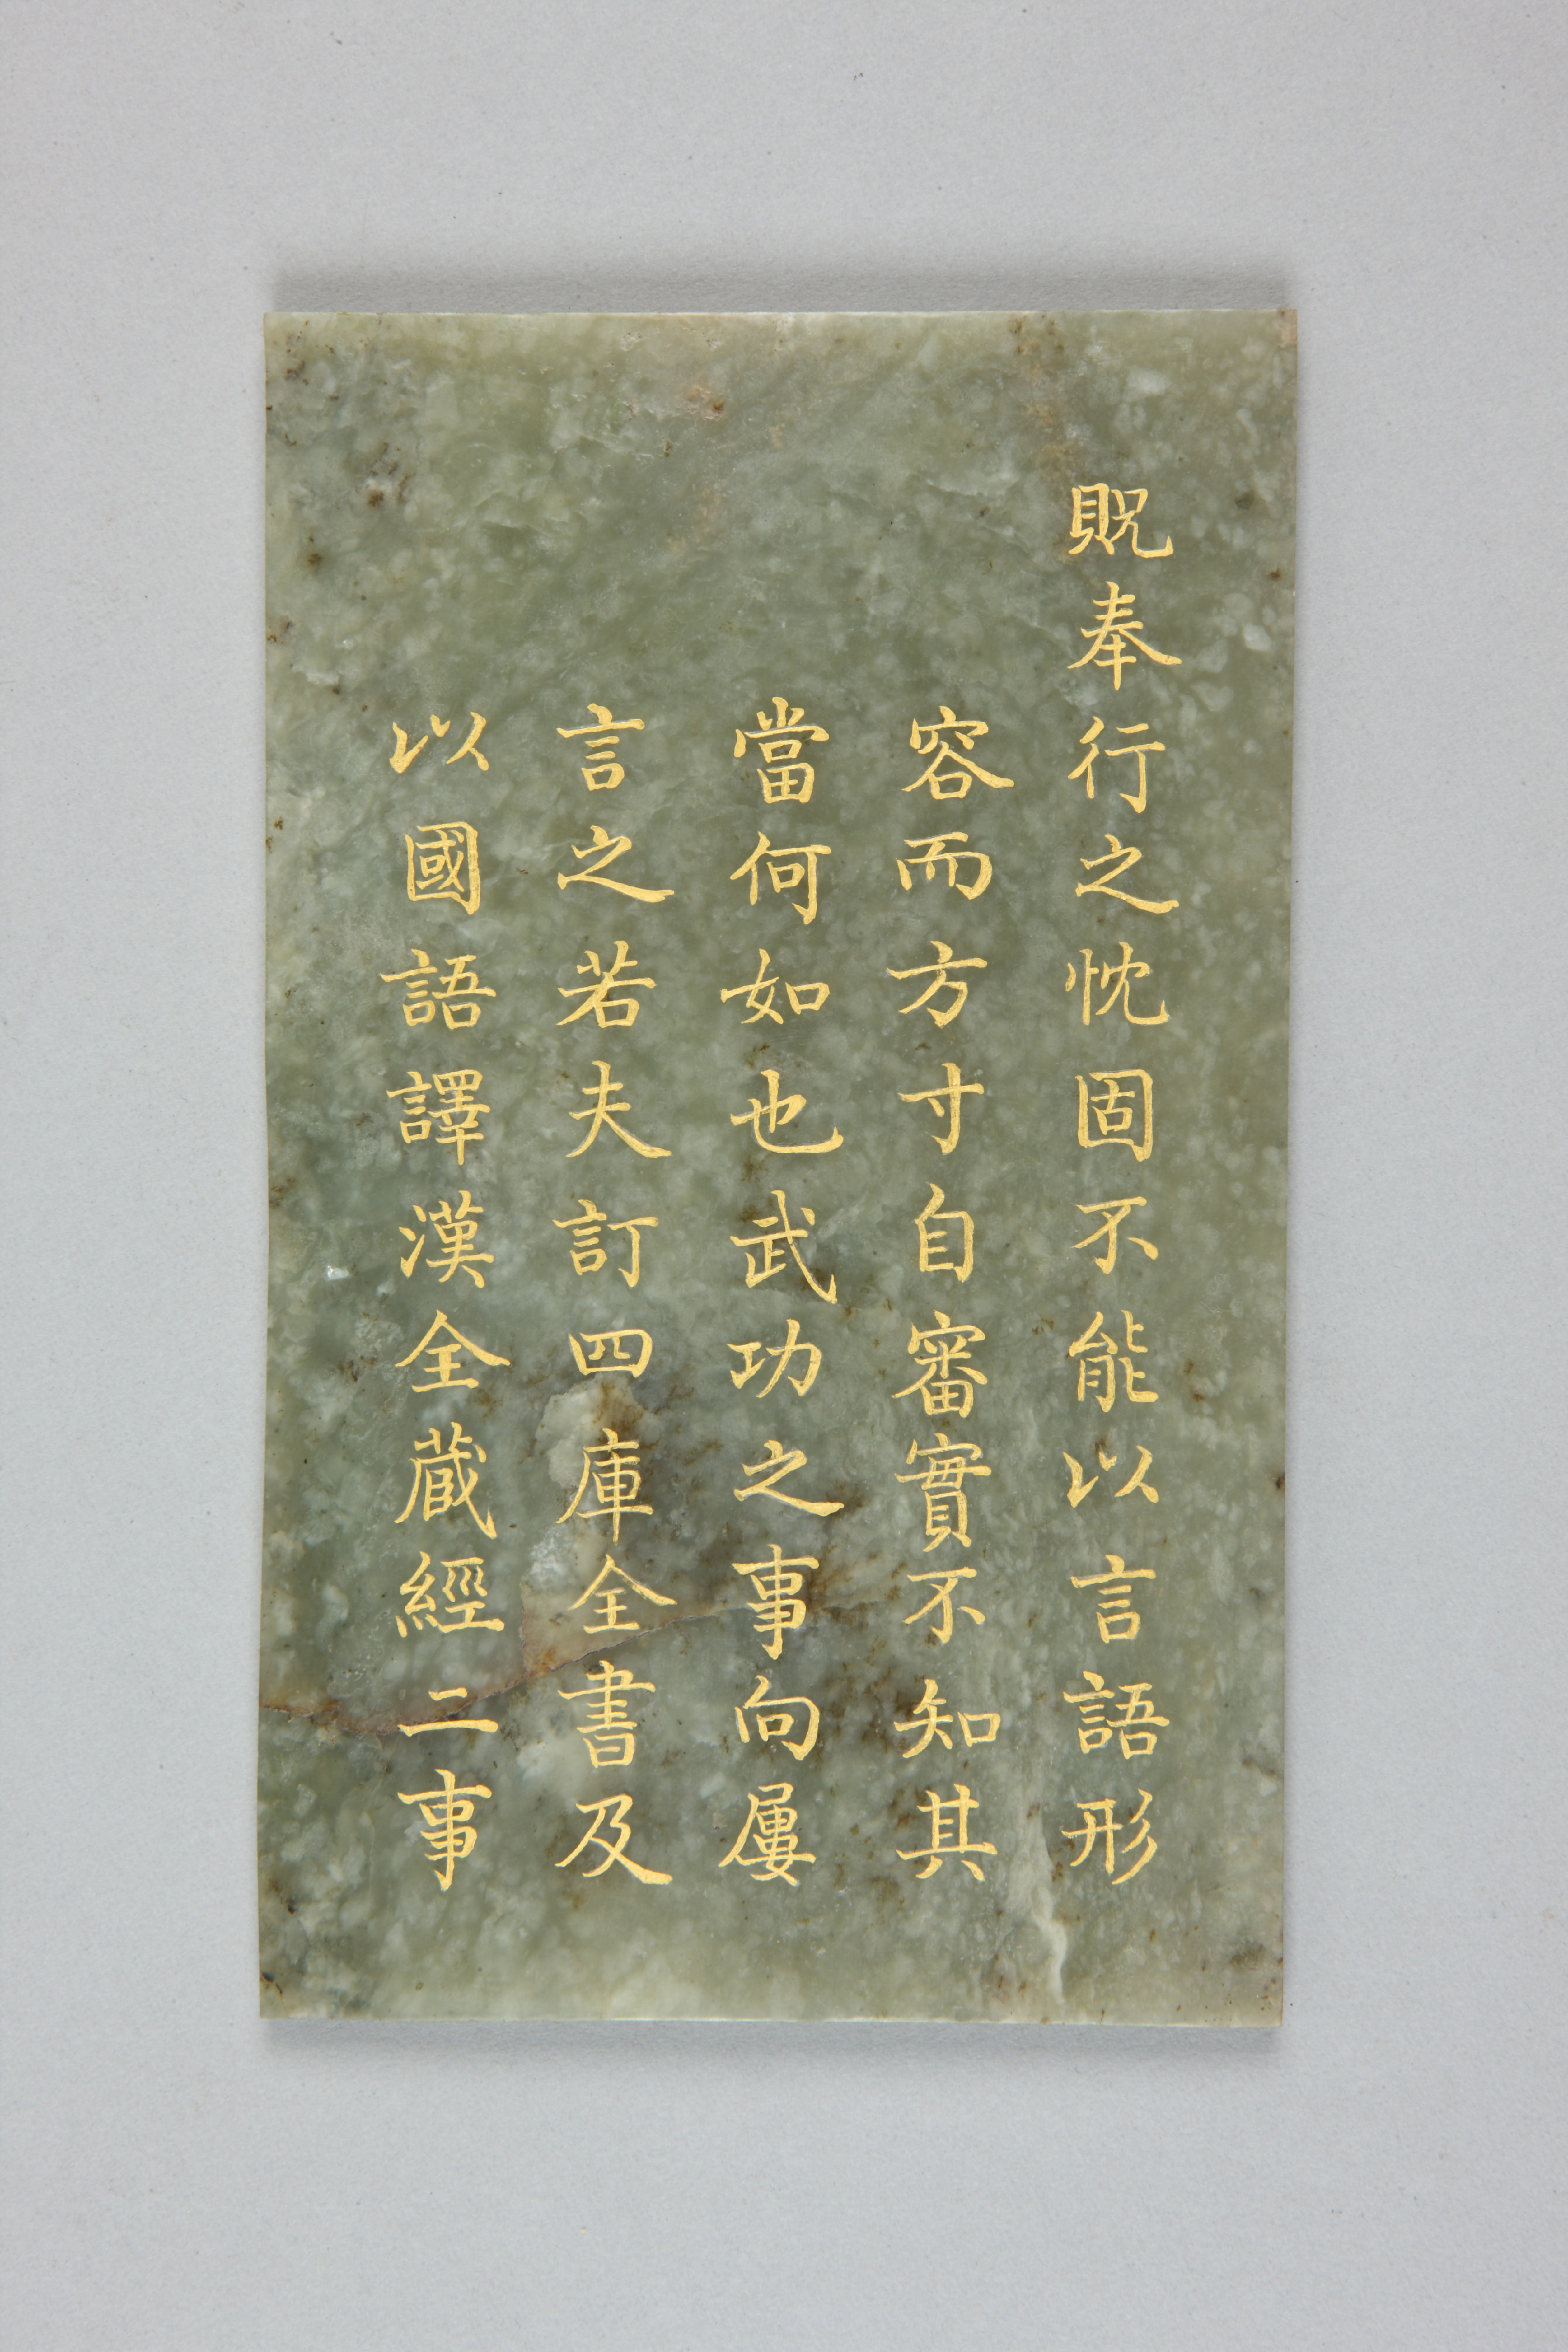 貺奉行之忱固不能以言語形
容而方寸自審實不知其
當何如也武功之事向屢
言之若夫訂四庫全書及
以國語譯漢全蔵經二事